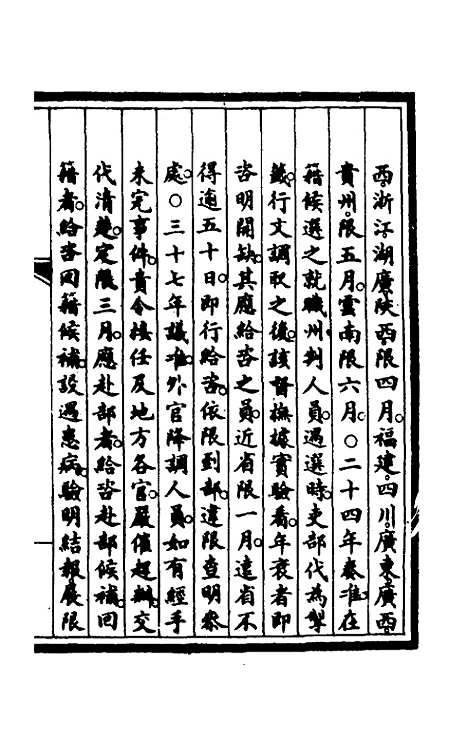 西浙江湖廣陝西限四月福建四川廣東廣西
貴州限五月雲南限六月○二十四年奏准在
籍候選之就職州判人員遇選時吏部代為掣
籤行文調取之後該督撫據實驗看年衰者即
咨明開缺其應給咨之員近省限一月遠省不
得逾五十日即行給咨依限到部違限查明參
處○三十七年議准外官降調人員如有經手
未完事件責令接任及地方各官嚴催趕辦交
代清楚定限三月應赴部者給咨赴部候補回
籍者給咨回籍候補設遇患病驗明結報展限